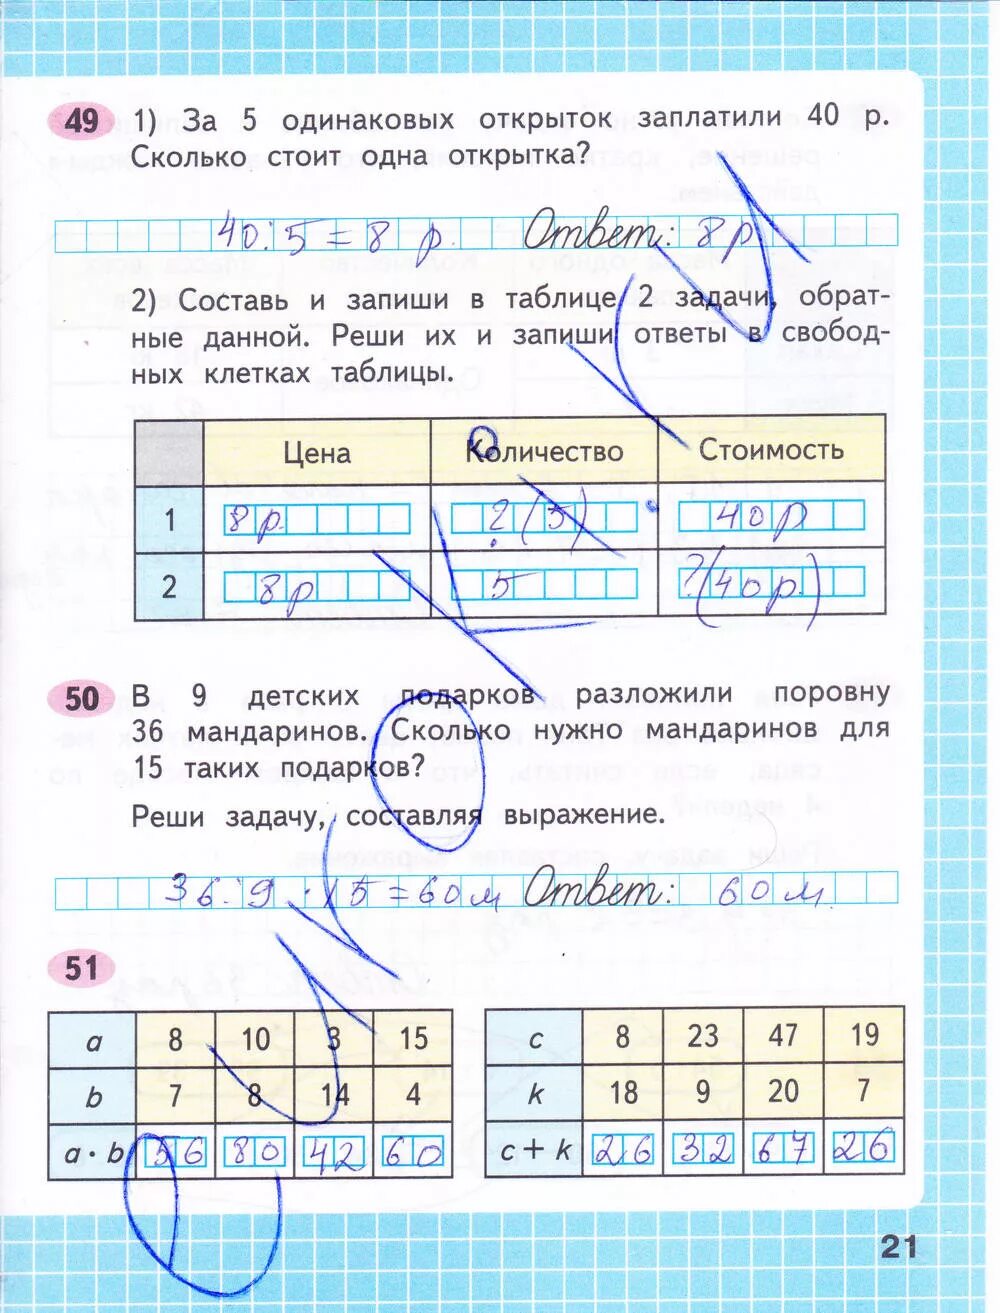 49 1) За 5 одинаковых открыток заплатили 40 р.
Сколько стоит одна открытка?
40:5=8 р. Ответ: 8 р.
2) Составь и запиши в таблице 2 задачи, обрат-
ные данной. Реши их и запиши ответы в свобод-
ных клетках таблицы.
Цена Количество Стоимость
1 8 р. ? (5) 40 р
2 8 р 5 ?(40 р.)
50 В 9 детских подарков разложили поровну
36 мандаринов. Сколько нужно мандаринов для
15 таких подарков?
Реши задачу, составляя выражение.
36:9·15=60 м Ответ: 60 м
51
a 8 10 3 15
b 7 8 14 4
a · b 56 80 42 60
c 8 23 47 19
k 18 9 20 7
c + k 26 32 67 26
21